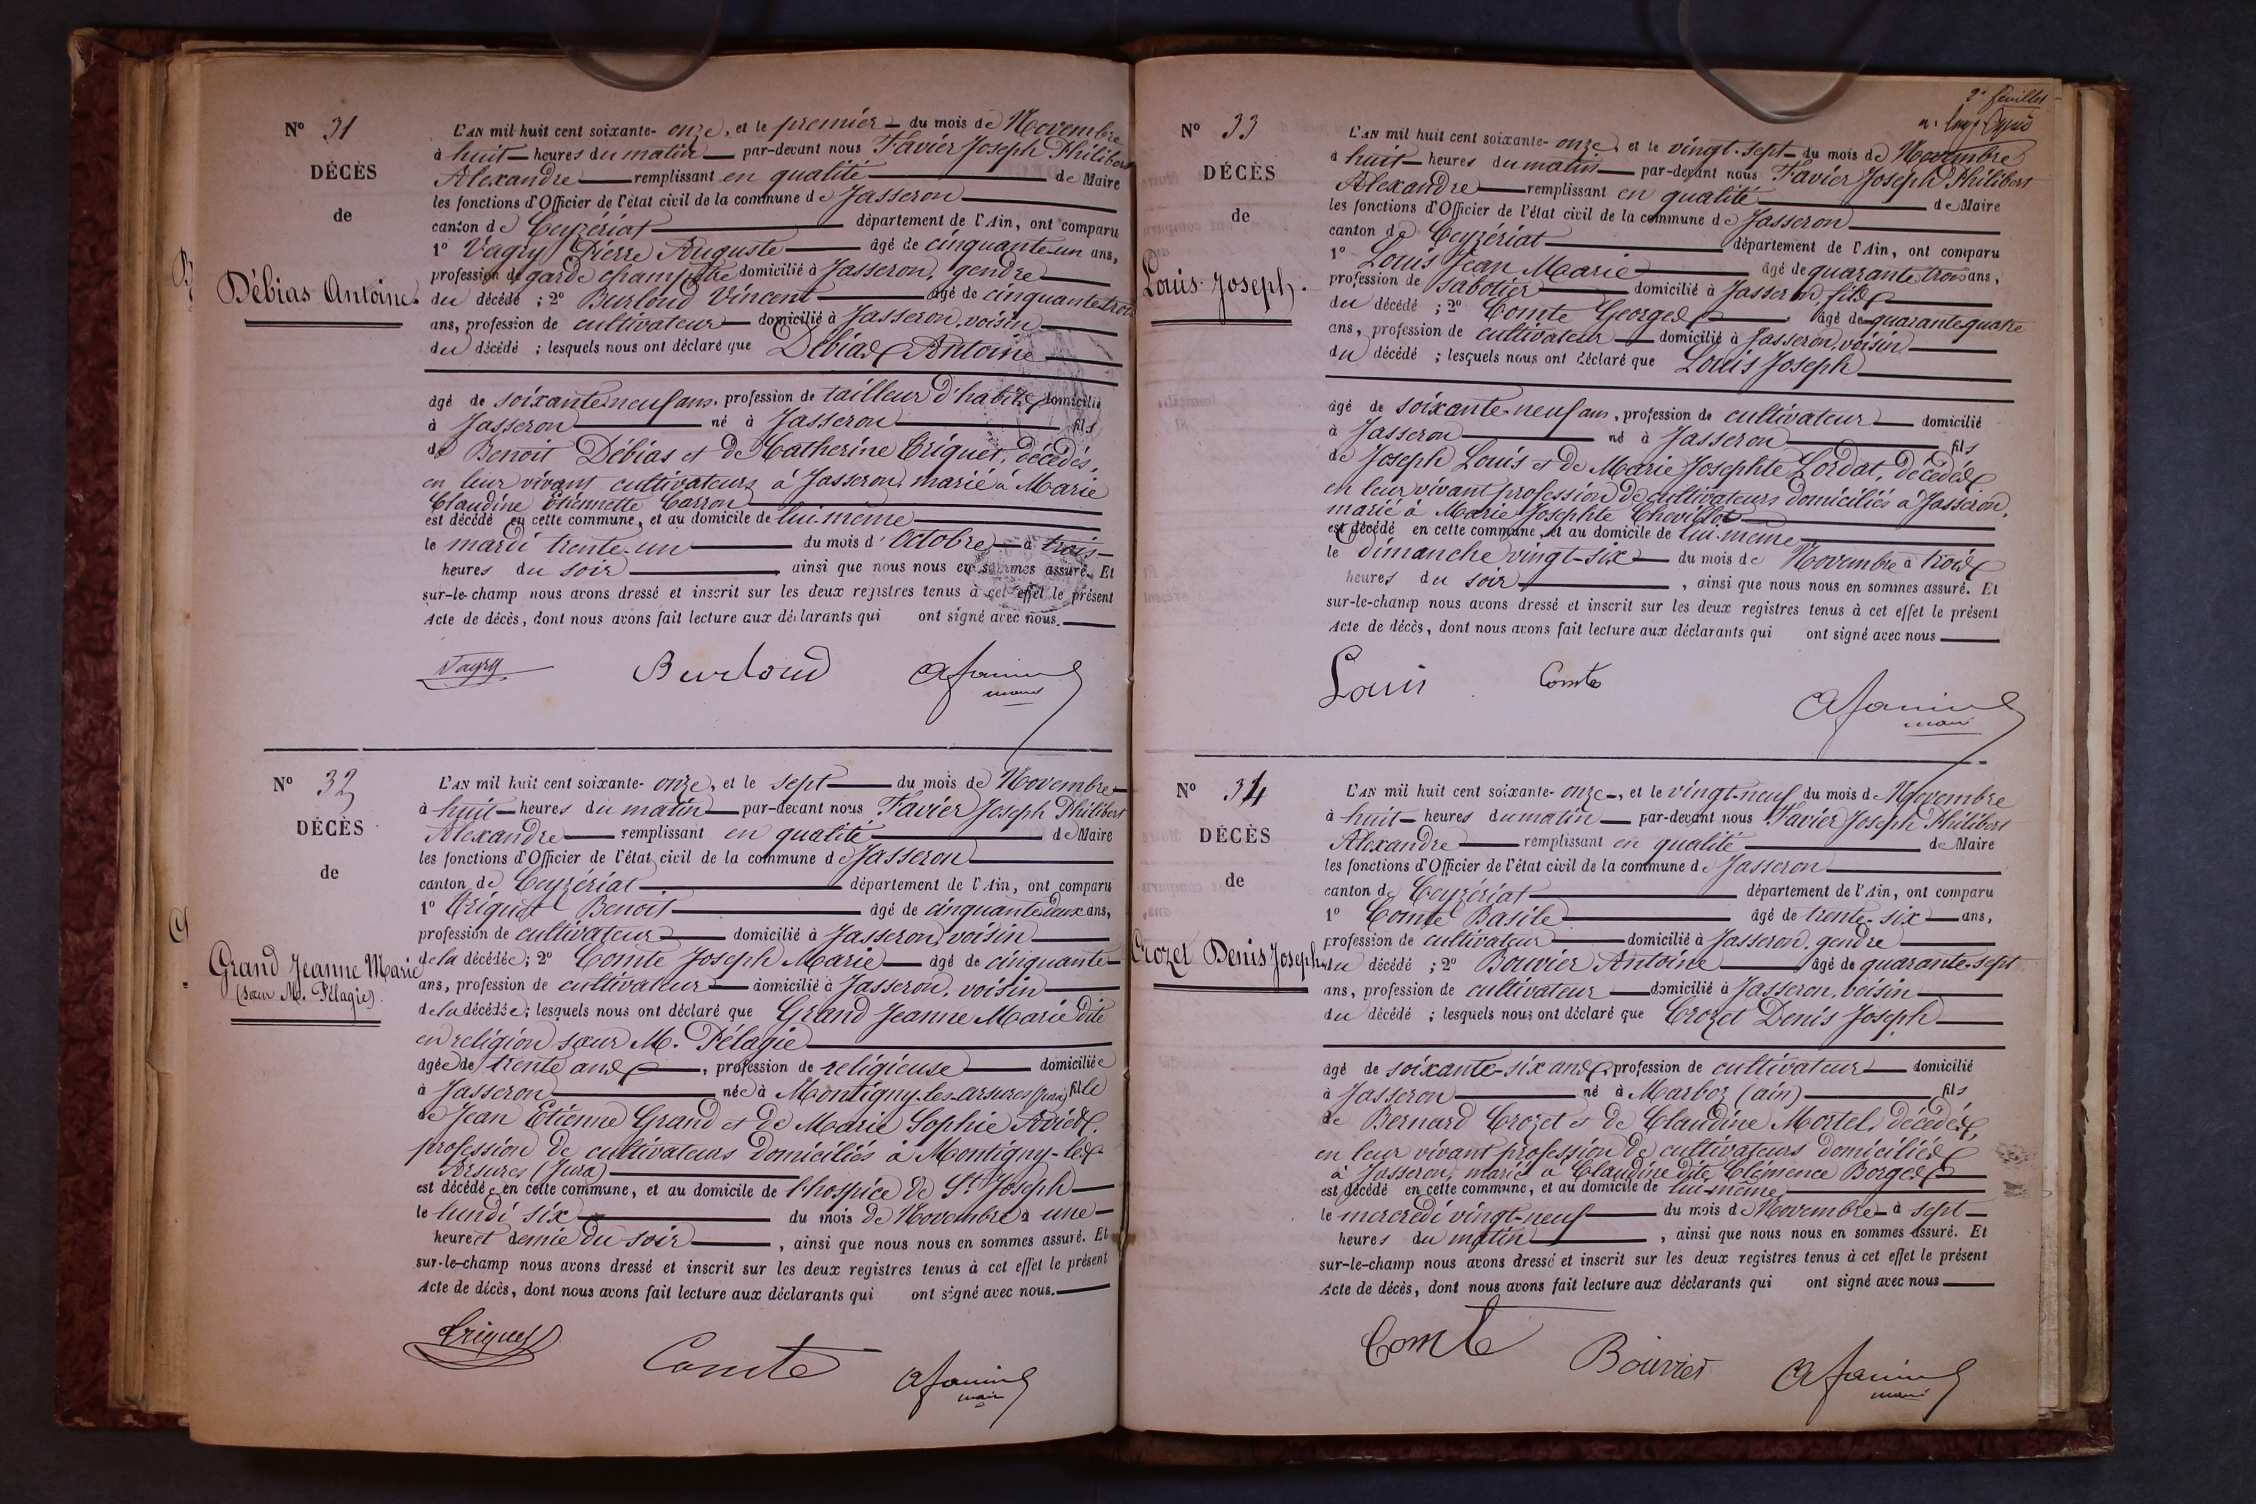 N° 31
DÉCÈS
de
Débias Antoine.
L'AN mil huit cent soixante-onze, et le premier du mois de Novembre
à huit heures du matin par-devant nous Favier Joseph Philibert
Alexandre remplissant en qualité de Maire
les fonctions d'Officier de l'état civil de la commune de Jasseron
canton de Ceyzériat département de l'Ain, ont comparu
1° Vagry Pierre Auguste âgé de cinquante-un ans,
profession de garde champêtre domicilié à Jasseron, gendre
du décédé ; 2° Burloud Vincent âgé de cinquante trois
ans, profession de cultivateur domicilié à Jasseron, voisin
du décédé ; lesquels nous ont déclaré que Débias Antoine
âgé de soixante-neuf ans, profession de tailleur d'habits domicilié
à Jasseron né à Jasseron fils
de Benoit Débias et de Catherine Criquet, décédés,
en leur vivant cultivateurs à Jasseron, marié à Marie
Claudine Etiennette Carron
est décédé en cette commune, et au domicile de lui-même
le mardi trente-un du mois d'Octobre à trois
heures du soir ainsi que nous nous en sommes assuré. Et
sur-le-champ nous avons dressé et inscrit sur les deux registres tenus à cet effet le présent
Acte de décès, dont nous avons fait lecture aux déclarants qui ont signé avec nous.
Vagry Burloud
N° 32
DÉCÈS
de
Grand Jeanne Marie
(sœur M. Pélagie).
L'AN mil huit cent soixante-onze, et le sept du mois de Novembre
à huit heures du matin par-devant nous Favier Joseph Philibert
Alexandre remplissant en qualité de Maire
les fonctions d'Officier de l'état civil de la commune de Jasseron
canton de Ceyzériat département de l'Ain, ont comparu
1° Criquet Benoit âgé de cinquante deux ans,
profession de cultivateur domicilié à Jasseron, voisin
de la décédée ; 2° Comte Joseph Marie âgé de cinquante
ans, profession de cultivateur domicilié à Jasseron, voisin
de la décédée ; lesquels nous ont déclaré que Grand Jeanne Marie dite
en religion sœur M. Pélagie
âgée de trente ans, profession de religieuse domiciliée
à Jasseron née à Montigny-les-arsures (jura) fille
de Jean Etienne Grand et de Marie Sophie
profession de cultivateurs domiciliés à Montigny-les
Arsures (Jura)
est décédée en cette commune, et au domicile de l'hospice de St Joseph
le lundi six du mois de Novembre à une
heure et demie du soir, ainsi que nous nous en sommes assuré. Et
sur-le-champ nous avons dressé et inscrit sur les deux registres tenus à cet effet le présent
Acte de décès, dont nous avons fait lecture aux déclarants qui ont signé avec nous.
Criquet Comte
2e feuillet
N° 33
DÉCÈS
de
Louis Joseph.
L'AN mil huit cent soixante-onze, et le vingt-sept du mois de Novembre
à huit heures du matin par-devant nous Favier Joseph Philibert
Alexandre remplissant en qualité de Maire
les fonctions d'Officier de l'état civil de la commune de Jasseron
canton de Ceyzériat département de l'Ain, ont comparu
1° Louis Jean Marie âgé de quarante trois ans,
profession de sabotier domicilié à Jasseron, fils
du décédé ; 2° Comte Georges, âgé de quarante quatre
ans, profession de cultivateur domicilié à Jasseron, voisin
du décédé ; lesquels nous ont déclaré que Louis Joseph
âgé de soixante-neuf ans, profession de cultivateur domicilié
à Jasseron né à Jasseron fils
de Joseph Louis et de Marie Josephte Lordat, décédés
en leur vivant profession de cultivateurs domiciliés à Jasseron,
marié à Marie Josephte Chevillot
est décédé en cette commune, et au domicile de lui-même
le dimanche vingt-six du mois de Novembre à trois
heures du soir, ainsi que nous nous en sommes assuré. Et
sur-le-champ nous avons dressé et inscrit sur les deux registres tenus à cet effet le présent
Acte de décès, dont nous avons fait lecture aux déclarants qui ont signé avec nous
Louis Comte
N° 34
DÉCÈS
de
Crozet Denis Joseph
L'AN mil huit cent soixante-onze, et le vingt-neuf du mois de Novembre
à huit heures du matin par-devant nous Favier Joseph Philibert
Alexandre remplissant en qualité de Maire
les fonctions d'Officier de l'état civil de la commune de Jasseron
canton de Ceyzériat département de l'Ain, ont comparu
1° Comte Basile âgé de trente-six ans,
profession de cultivateur domicilié à Jasseron, gendre
du décédé ; 2° Bouvier Antoine âgé de quarante-sept
ans, profession de cultivateur domicilié à Jasseron, voisin
du décédé ; lesquels nous ont déclaré que Crozet Denis Joseph
âgé de soixante-six ans, profession de cultivateur domicilié
à Jasseron né à Marboz (ain) fils
de Bernard Crozet et de Claudine Mortel, décédés,
en leur vivant profession de cultivateurs domiciliés
à Jasseron, marié à Claudine dite Clémence Borges
est décédé en cette commune, et au domicile de lui-même
le mercredi vingt-neuf du mois de Novembre à sept
heures du matin, ainsi que nous nous en sommes assuré. Et
sur-le-champ nous avons dressé et inscrit sur les deux registres tenus à cet effet le présent
Acte de décès, dont nous avons fait lecture aux déclarants qui ont signé avec nous
Comte Bouvier